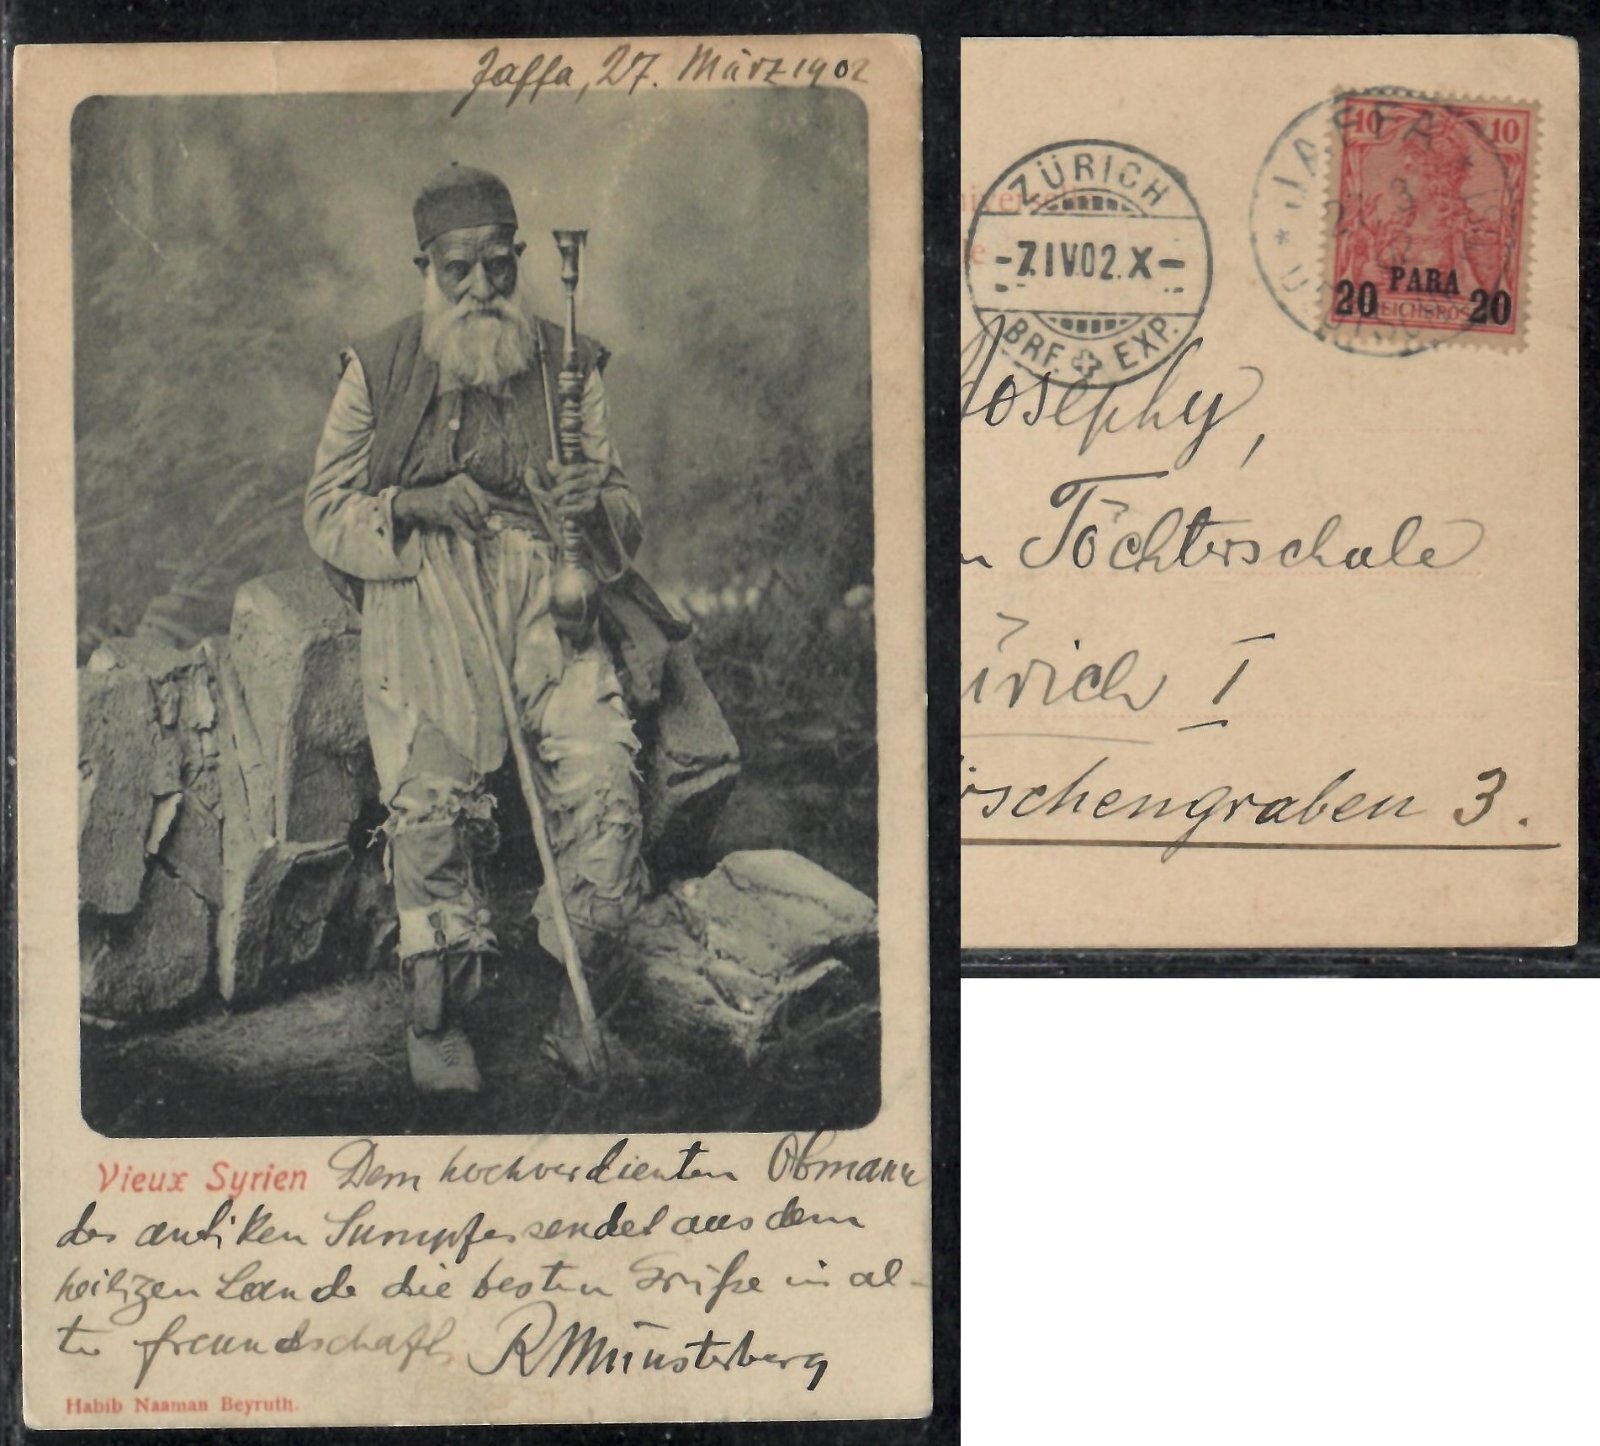 Jaffa, 27. März 1902
Vieux Syrien
Dem hochverdienten Obmann
des antiken Sumpfes sendet aus dem
heiligen Lande die besten Grüße in al-
ter Freundschaft
RMünsterberg
Habib Naaman Beyruth.
ZÜRICH
-7.IV.02.X-
BRF. EXP.
JAFFA
10 10
20 PARA 20
REICHSPOST
Josephy,
n Töchterschule
ürich I
irschengraben 3.